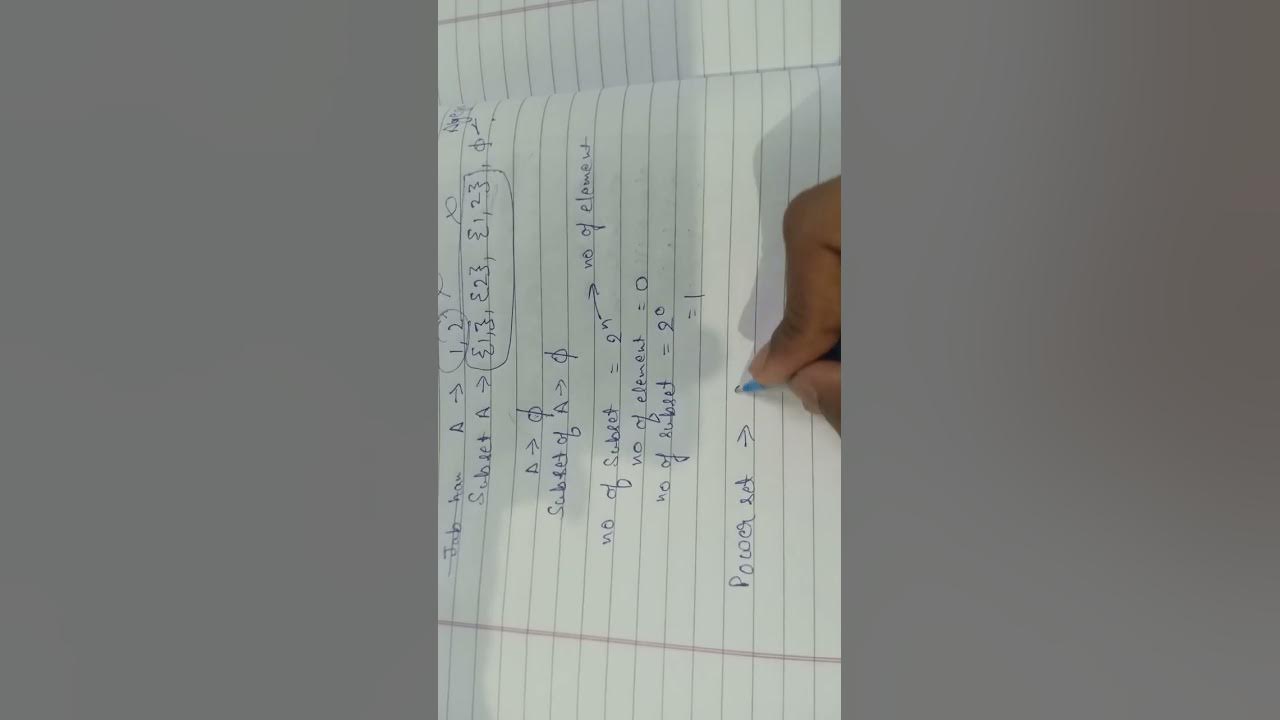 Jab hum A → 1, 2
Subset A → {1}, {2}, {1,2}, φ
A → φ
Subset of A → φ
no of subset = 2ⁿ → no of element
no of element = 0
no of subset = 2⁰
= 1
Power set →